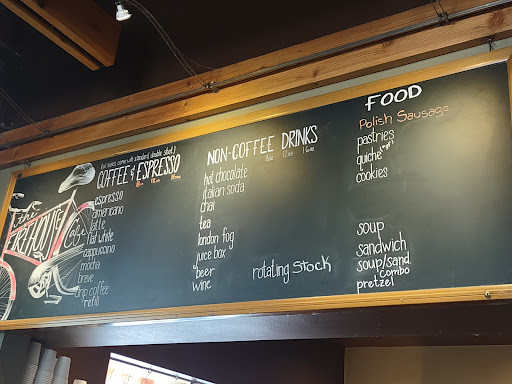 the
FIREHOUSE
Cafe
(all mixes come with standard double shot)
COFFEE & ESPRESSO
8oz 12oz 16oz
espresso
americano
latte
flat white
cappuccino
mocha
breve
drip coffee
refill
NON-COFFEE DRINKS
8oz 12oz 16oz
hot chocolate
italian soda
chai
tea
london fog
juice box
beer
wine
rotating Stock
FOOD
Polish Sausage
pastries
quiche
cookies
soup
sandwich
soup/sand
combo
pretzel